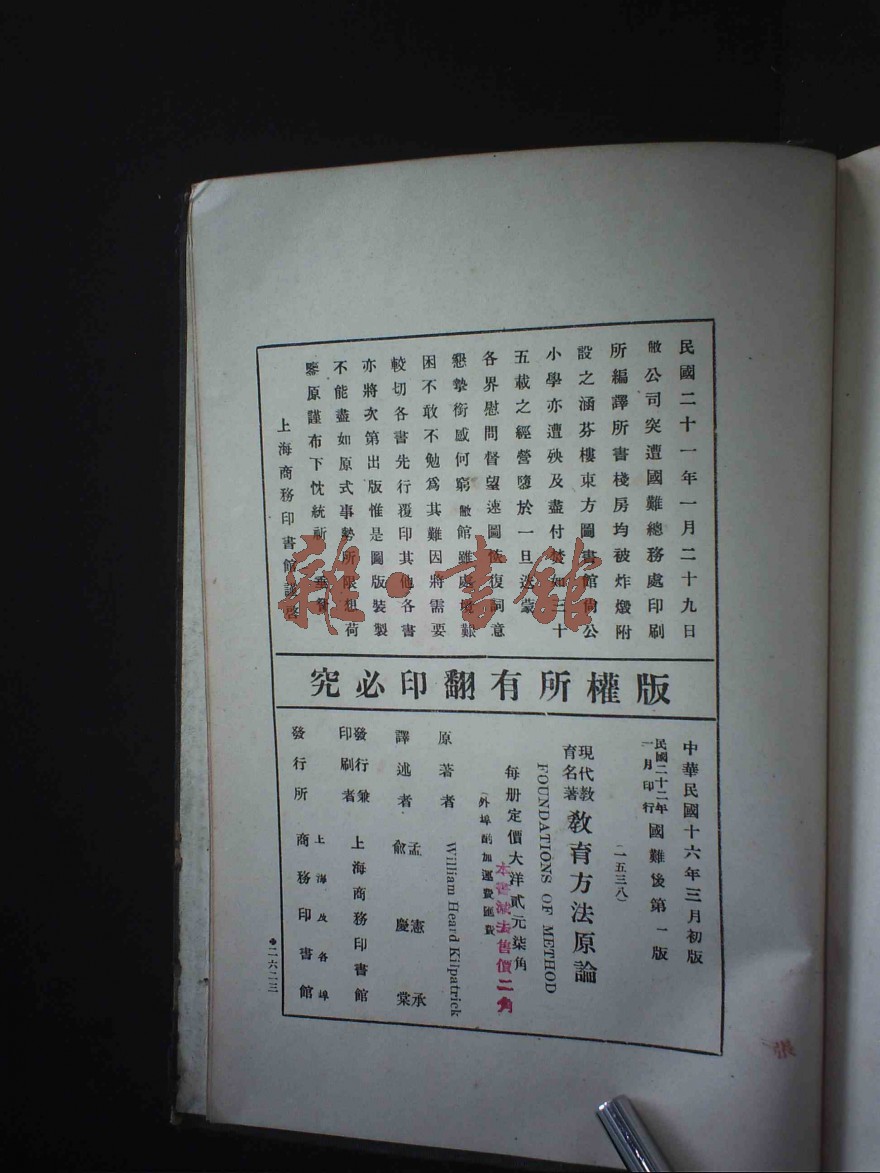 民國二十一年一月二十九日
敝公司突遭國難總務處印刷
所編譯所書棧房均被炸燬附
設之涵芬樓東方圖書館尚公
小學亦遭殃及盡付焚如三十
五載之經營隳於一旦迭蒙
各界慰問督望速圖恢復詞意
懇摯銜感何窮敝館雖處境艱
困不敢不勉爲其難因將需要
較切各書先行覆印其他各書
亦將次第出版惟是圖版裝製
不能盡如原式事勢所限想荷
鑒原謹布下忱統祈 垂詧
上海商務印書館謹啓
雜·書館
版權所有翻印必究
中華民國十六年三月初版
民國二十二年一月印行 國難後第一版
(一五三八)
現代教育名著 教育方法原論
FOUNDATIONS OF METHOD
每册定價大洋貳元柒角
外埠酌加運費匯費
本書減去售價二角
原著者 William Heard Kilpatrick
譯述者 孟憲承 俞慶棠
發行兼印刷者 上海商務印書館
發行所 上海及各埠 商務印書館
二六二三
張